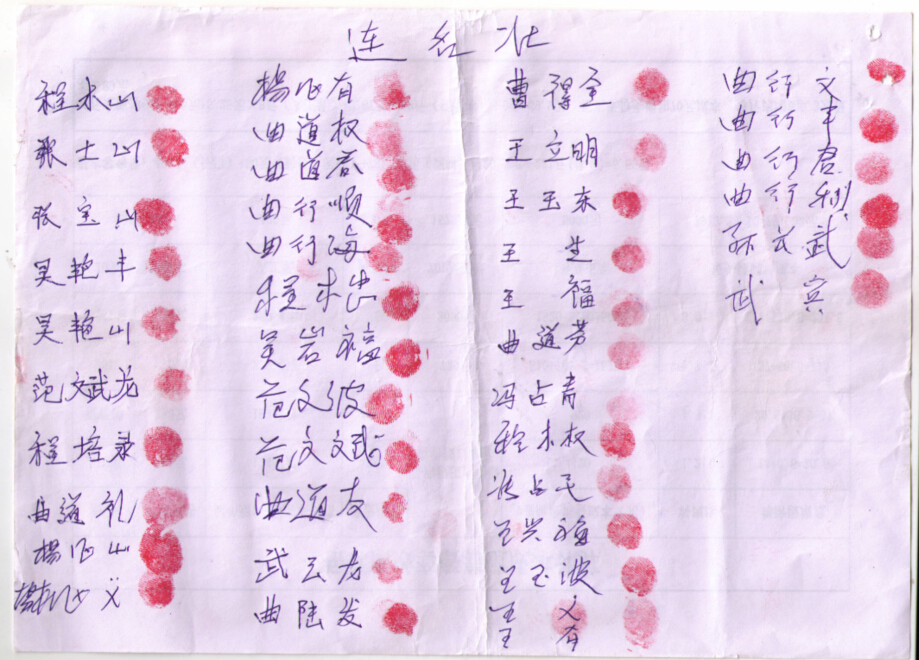 连红壮
程木山
张士山
张宝山
吴艳丰
吴艳山
范文武龙
程培录
曲道礼
杨化山
杨化义
楊化有
曲道权
曲道君
曲行顺
曲行海
程木忠
吴岩福
范文波
范文斌
曲道友
武云龙
曲陆发
曹得全
王立明
王玉东
王生
王福
曲道芳
冯占青
程木权
张占民
王兴福
王玉波
王义
王有
曲行文
曲行丰
曲行君
曲行利
孙文武
武宾